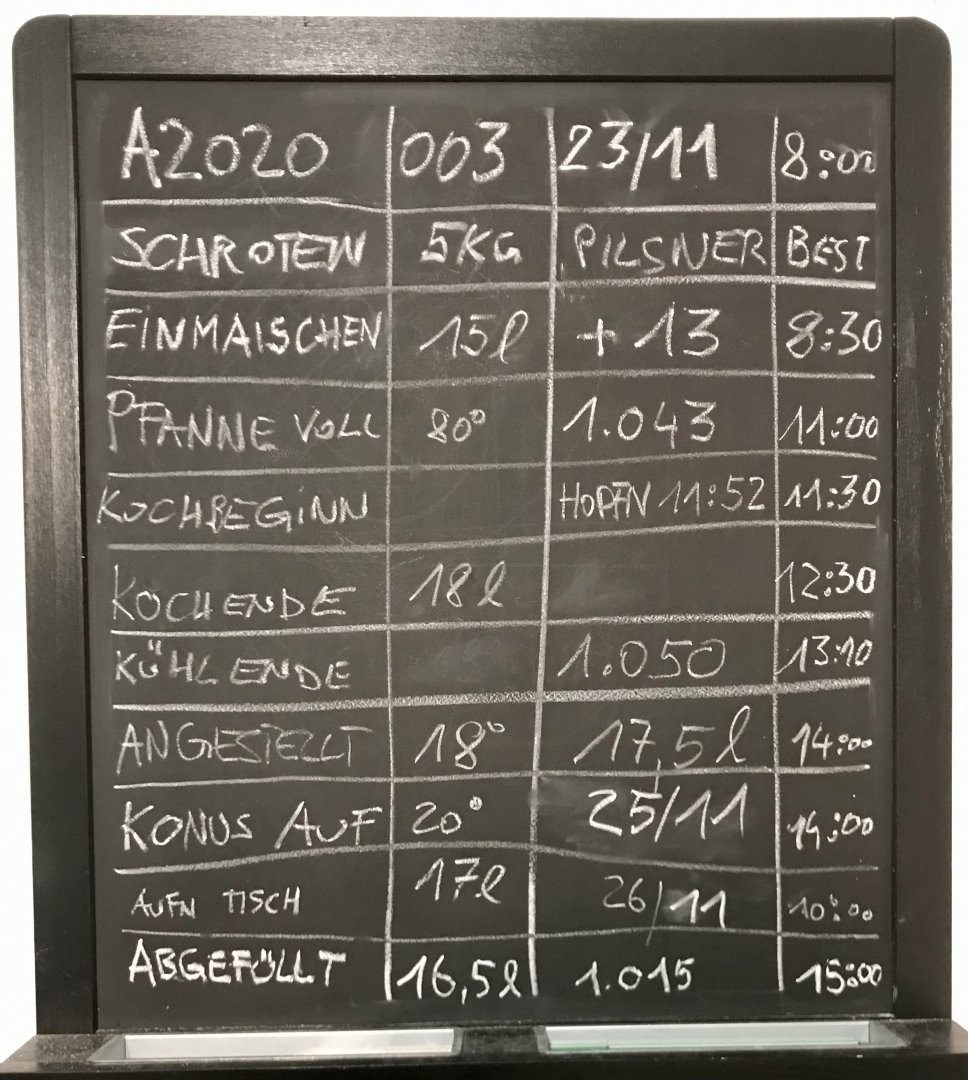 A2020 003 23/11 8:00
SCHROTEN 5KG PILSNER BEST
EINMAISCHEN 15l + 13 8:30
PFANNE VOLL 80° 1.043 11:00
KOCHBEGINN HOPFN 11:52 11:30
KOCHENDE 18l 12:30
KÜHLENDE 1.050 13:10
ANGESTELLT 18° 17,5l 14:00
KONUS AUF 20° 25/11 14:00
AUFN TISCH 17l 26/11 10:00
ABGEFÜLLT 16,5l 1.015 15:00